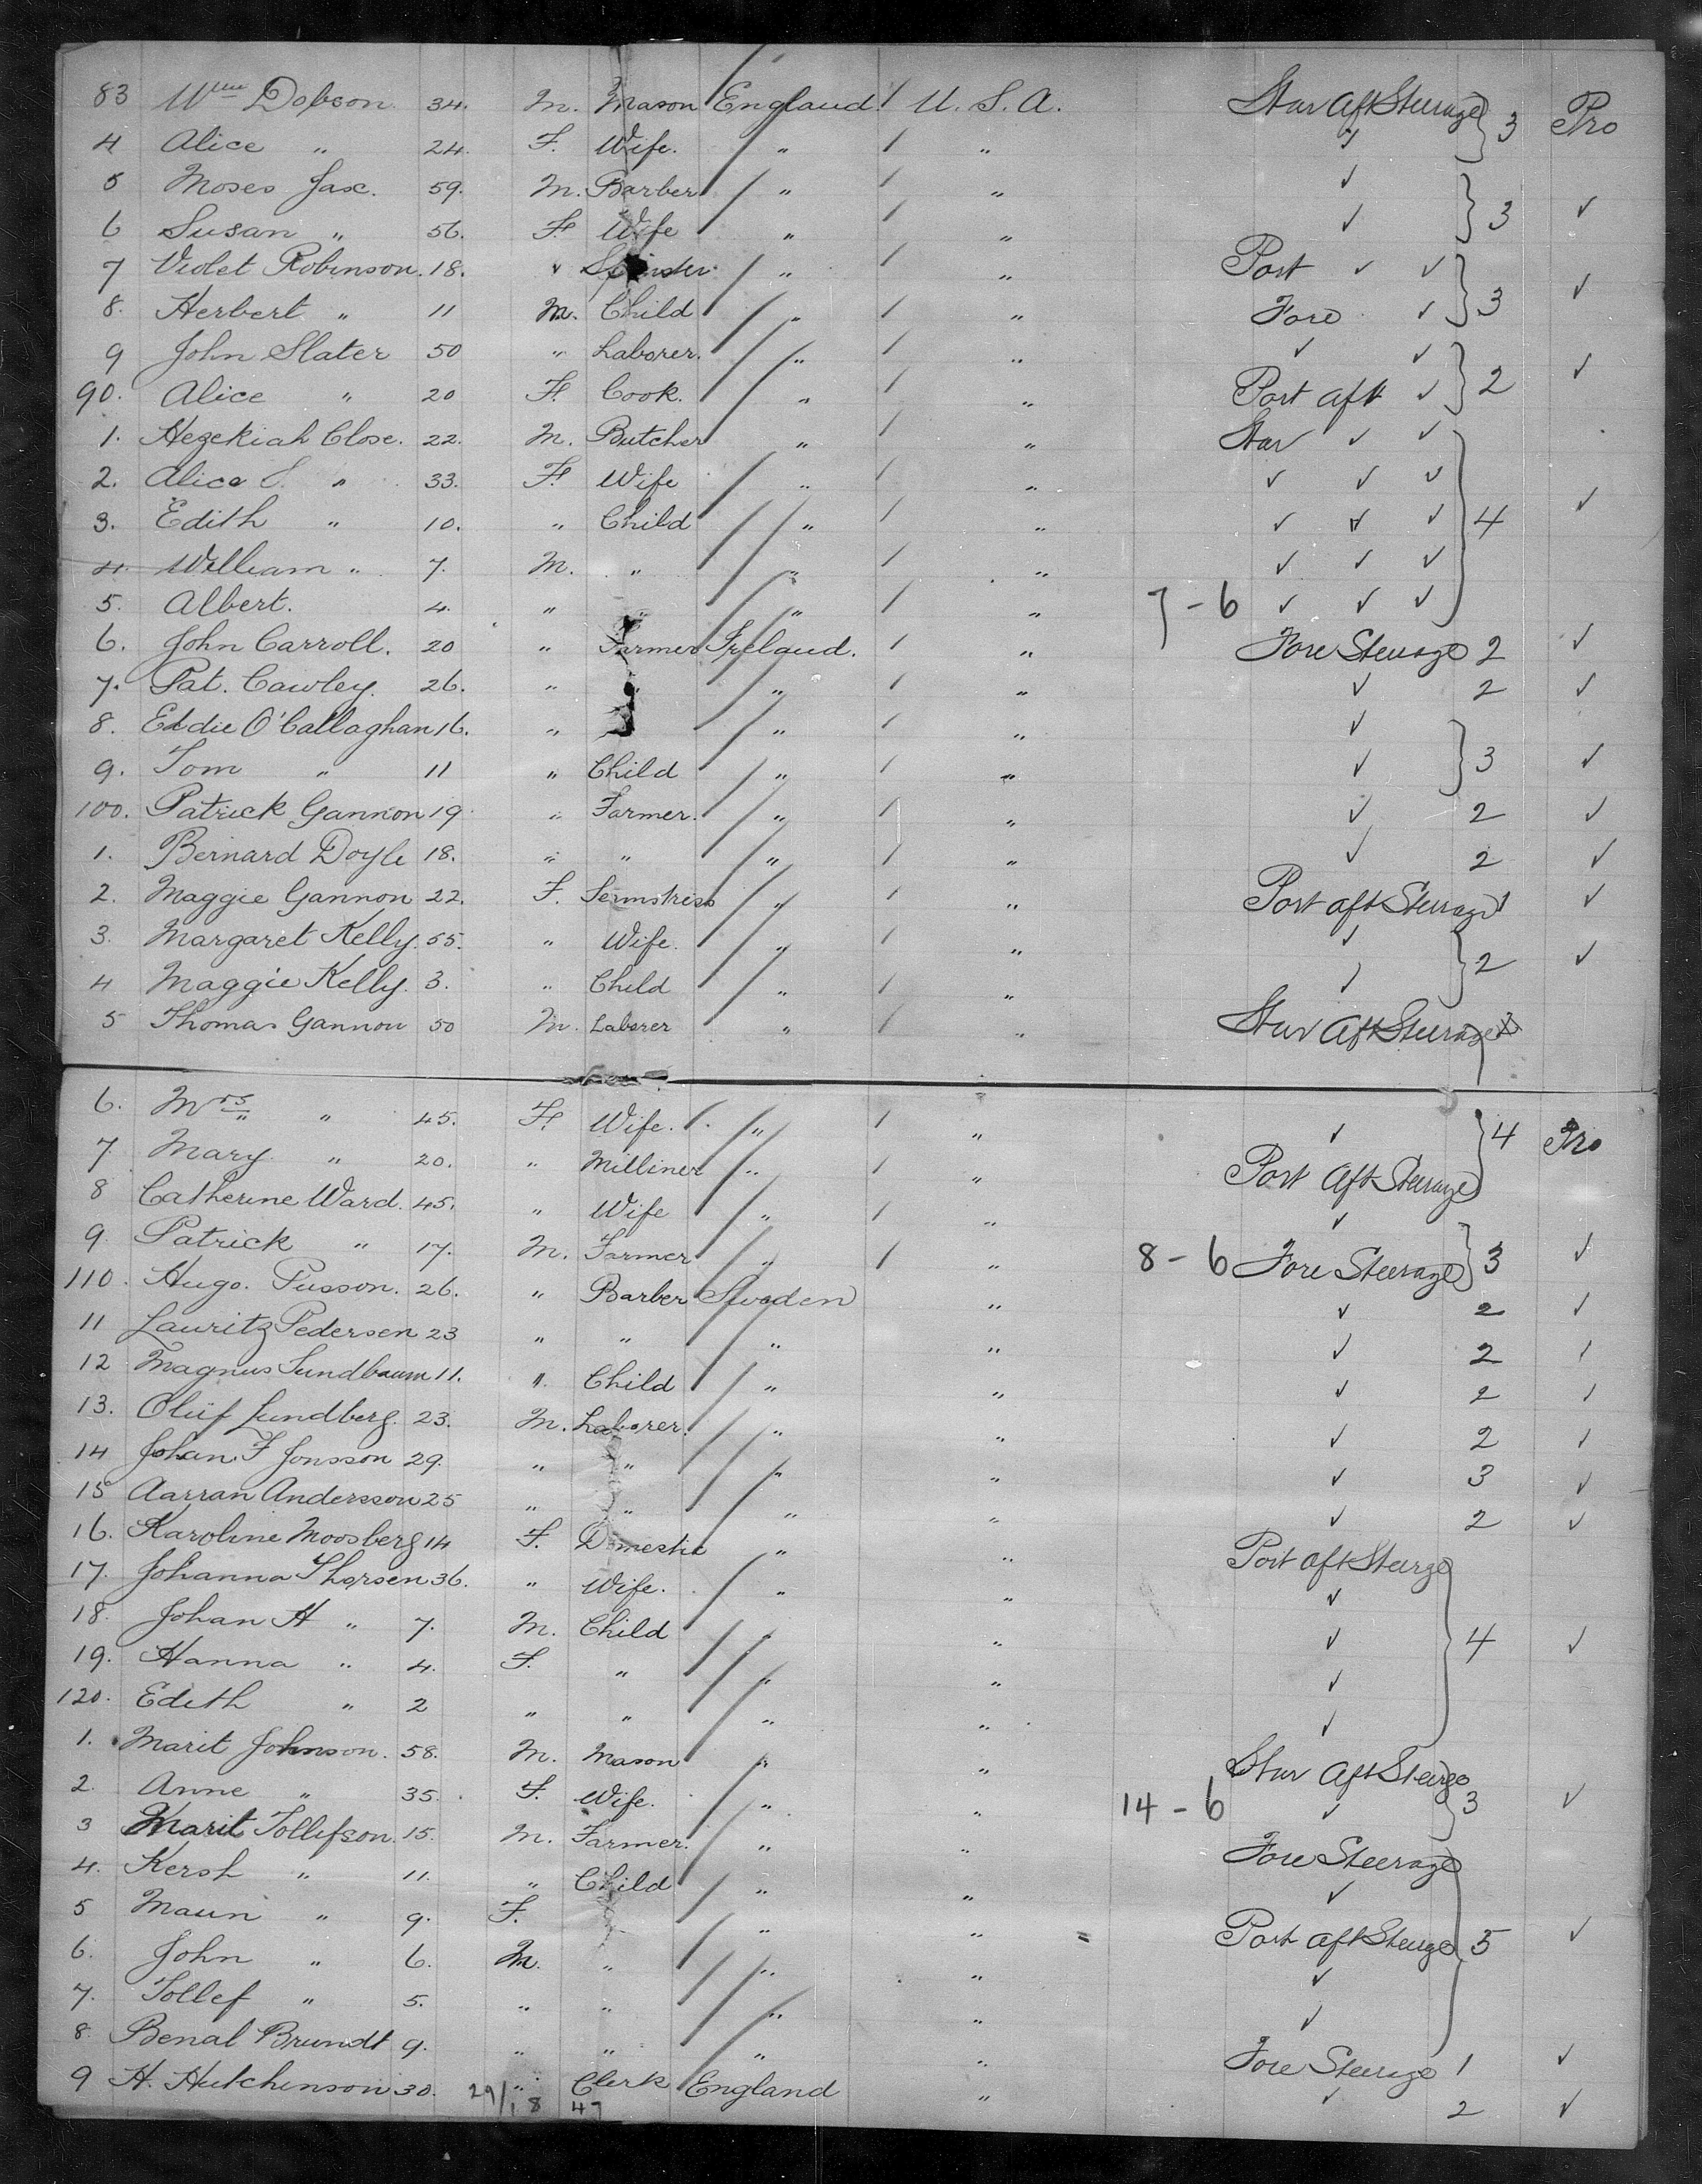 83 Wm Dobson. 34. M. Mason England / U. S. A. Star Aft Steerage } 3 Pro
4 Alice " 24. F. Wife. " / " ✓
5 Moses Jax. 59. M. Barber " / " ✓ } 3 ✓
6 Susan " 56. F. Wife " / " ✓
7 Violet Robinson. 18. ✓ Spinster. " / " Port ✓ ✓ } 3 ✓
8. Herbert " 11 M. Child " / " Fore ✓
9 John Slater 50 " Laborer. " / " ✓ ✓ } 2 ✓
90. Alice " 20 F. Cook. " / " Port aft ✓
1. Hezekiah Close. 22. M. Butcher " / " Star ✓ ✓
2. Alice " 33. F. Wife " / " ✓ ✓ ✓
3. Edith " 10. " Child " / " ✓ ✓ ✓ } 4 ✓
4. William " 7. M. " " / " ✓ ✓ ✓
5. Albert. 4. " " " / " 7 - 6 ✓ ✓ ✓
6. John Carroll. 20 " Farmer Ireland. / " Fore Steerage 2 ✓
7. Pat. Cawley. 26. " " " / " ✓ 2 ✓
8. Eddie O'Callaghan 16. " " / " ✓
9. Tom " 11 " Child " / " ✓ } 3 ✓
100. Patrick Gannon 19 " Farmer. " / " ✓ 2 ✓
1. Bernard Doyle 18. " " " / " ✓ 2 ✓
2. Maggie Gannon 22. F. Semstriss " / " Port aft Steerage 1 ✓
3. Margaret Kelly. 55. " Wife. " / " ✓ } 2 ✓
4 Maggie Kelly. 3. " Child " / " ✓
5 Thomas Gannon 50 M. Laborer " / " Star Aft Steerage
6. Mrs " 45. F. Wife. " / " ✓ } 4 Pro
7 Mary " 20. " Milliner " / " Port Aft Steerage
8 Catherine Ward. 45. " Wife " / " ✓
9. Patrick " 17. M. Farmer " / " 8 - 6 Fore Steerage } 3 ✓
110. Hugo. Pusson. 26. " Barber Sweden " ✓ 2 ✓
11 Lauritz Pedersen 23 " " " " ✓ 2 /
12 Magnus Sundbaum 11. " Child " " ✓ 2 /
13. Oluf Lundberg. 23. M. Laborer. " " ✓ 2 /
14 Johan F Jonsson 29. " " " " ✓ 3 ✓
15 Aarran Andersson 25 " " " " ✓ 2 ✓
16. Karoline Moosberg 14 F. Domestic " " Port aft Steerge
17. Johanna Thorsen 36. " Wife. " " ✓
18. Johan H " 7. M. Child " " ✓ } 4 ✓
19. Hanna " 4. F. " " " ✓
120. Edith " 2 " " " " ✓
1. Marit Johnson. 58. M. Mason " " Star Aft Steerge
2. Anne " 35. F. Wife. " " 14 - 6 ✓ } 3 ✓
3 Marit Tollefson. 15. M. Farmer. " " Fore Steerage
4. Kersh " 11. " Child " " ✓
5 Maun " 9. F. " " Port aft Steerge } 5 ✓
6. John " 6. M. " " " ✓
7. Tollef " 5. " " " " ✓
8. Benal Brundt 9. " " " " Fore Steerage 1 ✓
9 H. Hutchinson 30. " Clerk England " ✓ 2 ✓
29/18 47